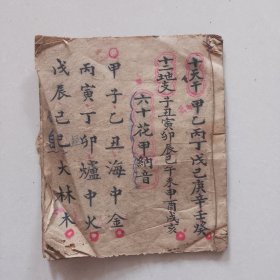 十天干 甲乙丙丁戊己庚辛壬癸
十二地支 子丑寅卯辰巳午未申酉戌亥
六十花甲納音
甲子乙丑海中金
丙寅丁卯爐中火
戊辰己巳大林木